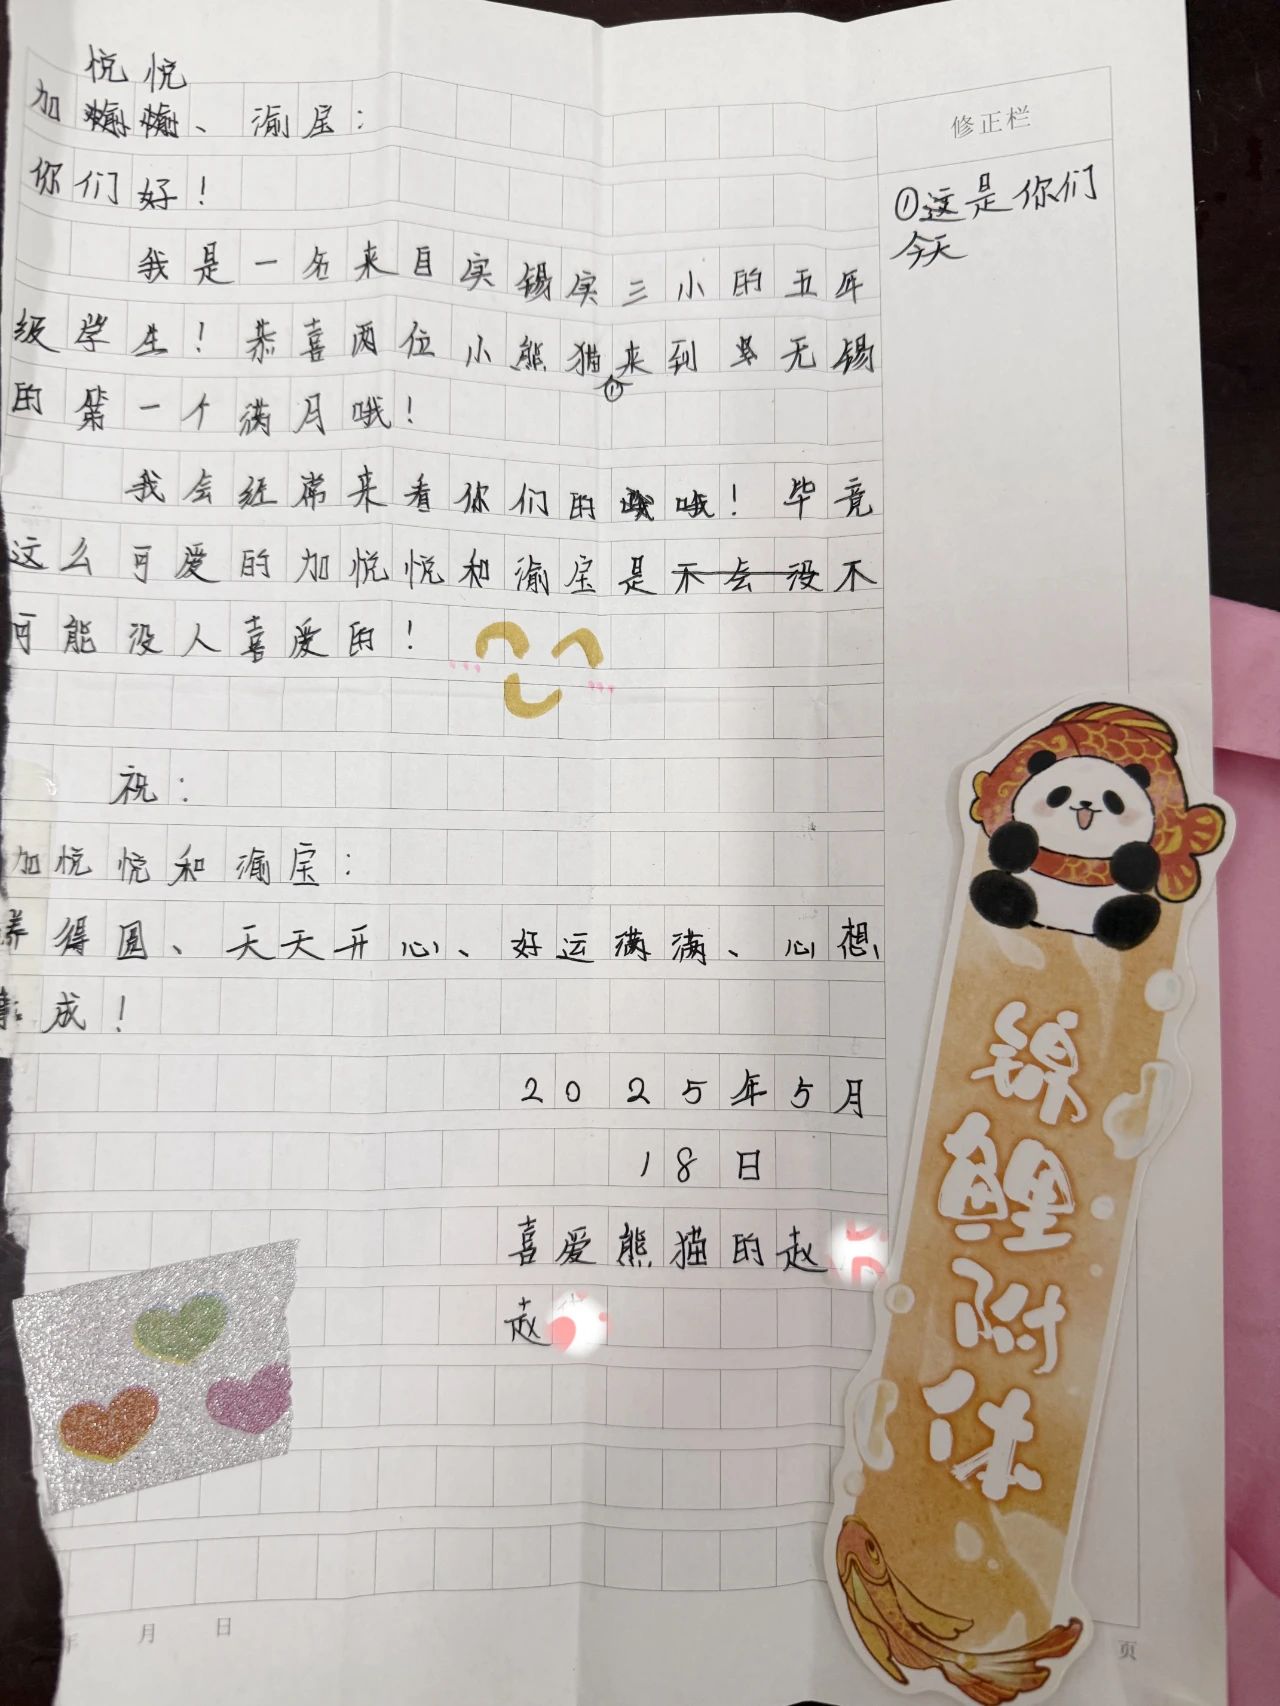 悦悦
加 、渝宝：
你们好！
我是一名来自实锡实三小的五年
级学生！恭喜两位小熊猫①来到 无锡
的第一个满月哦！
我会经常来看你们的 哦！毕竟
这么可爱的加悦悦和渝宝是不会没不
可能没人喜爱的！
祝：
加悦悦和渝宝：
养得圆、天天开心、好运满满、心想
事成！
2025年5月
18日
喜爱熊猫的赵
赵
年 月 日
修正栏
①这是你们
今天
锦鲤附体
页